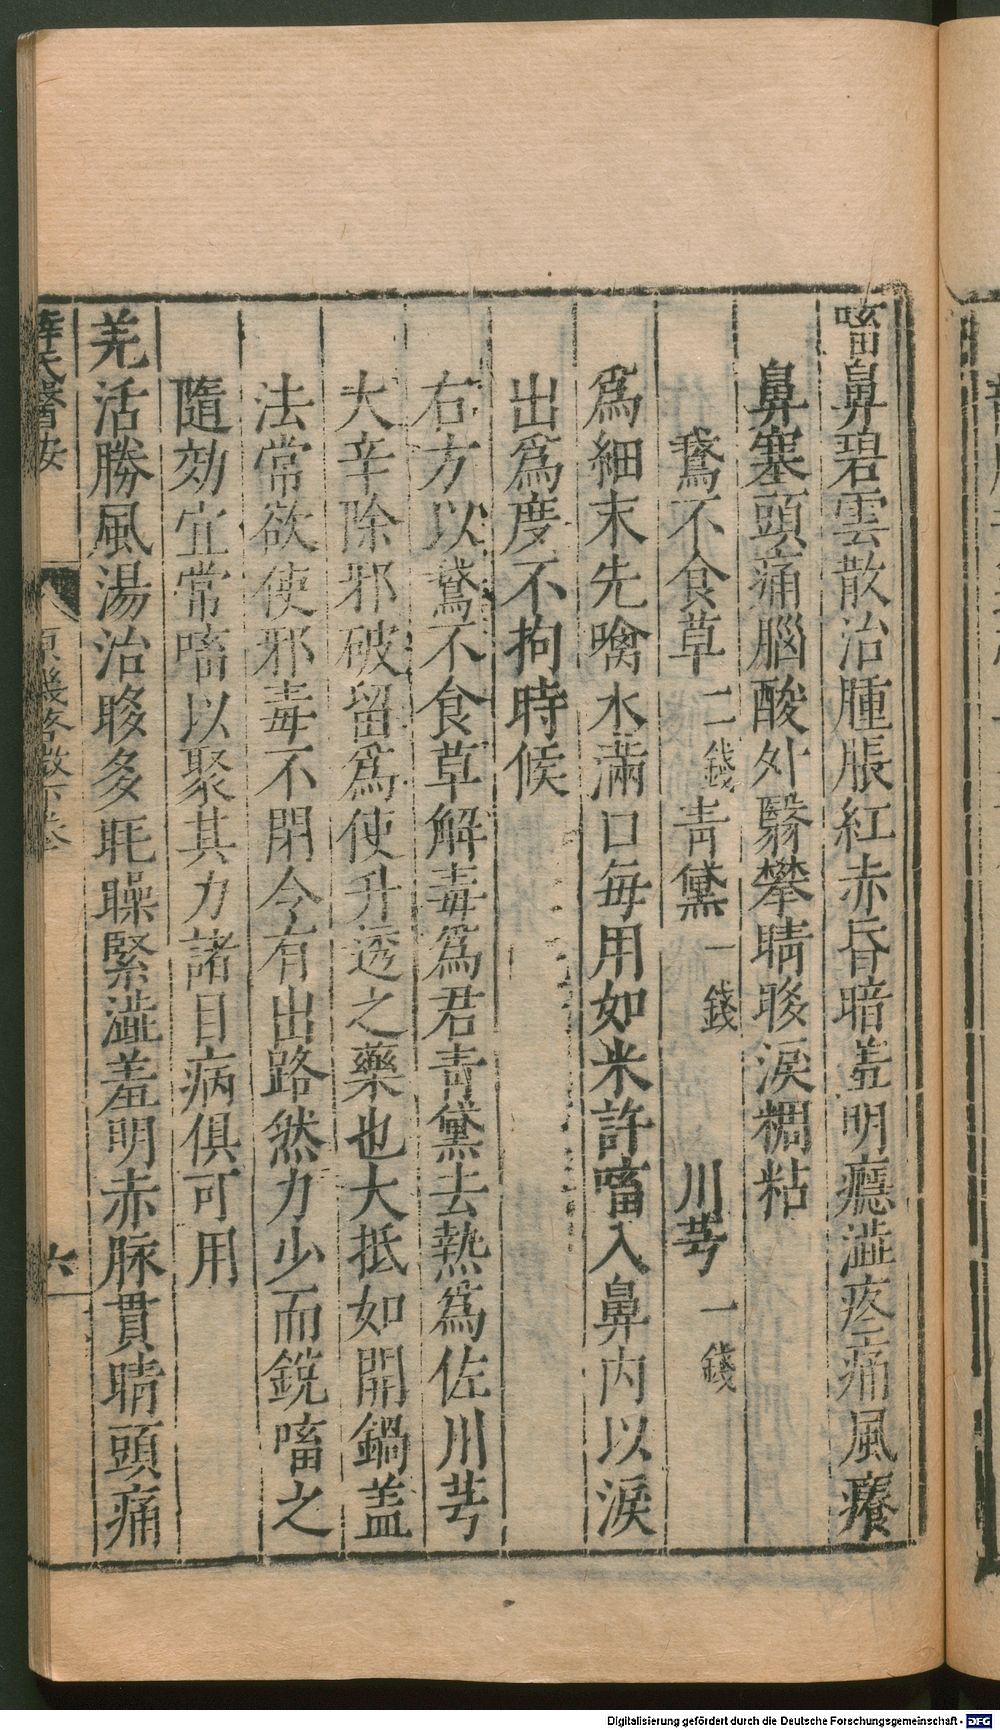 㗜鼻碧雲散治腫脹紅赤昏暗羞明癮澁疼痛風癢
鼻塞頭痛腦酸外翳攀睛眵淚稠粘
鵞不食草二錢青黛一錢川芎一錢
爲細末先噙水滿口每用如米許㗜入鼻內以淚
出爲度不拘時候
右方以鵞不食草解毒爲君青黛去熱爲佐川芎
大辛除邪破留爲使升透之藥也大抵如開鍋盖
法常欲使邪毒不閉令有出路然力少而銳㗜之
隨効宜常㗜以聚其力諸目病俱可用
羌活勝風湯治眵多眊矂緊澁羞明赤脉貫睛頭痛
薛氏醫按
原機啓微下卷
六
Digitalisierung gefördert durch die Deutsche Forschungsgemeinschaft - DFG